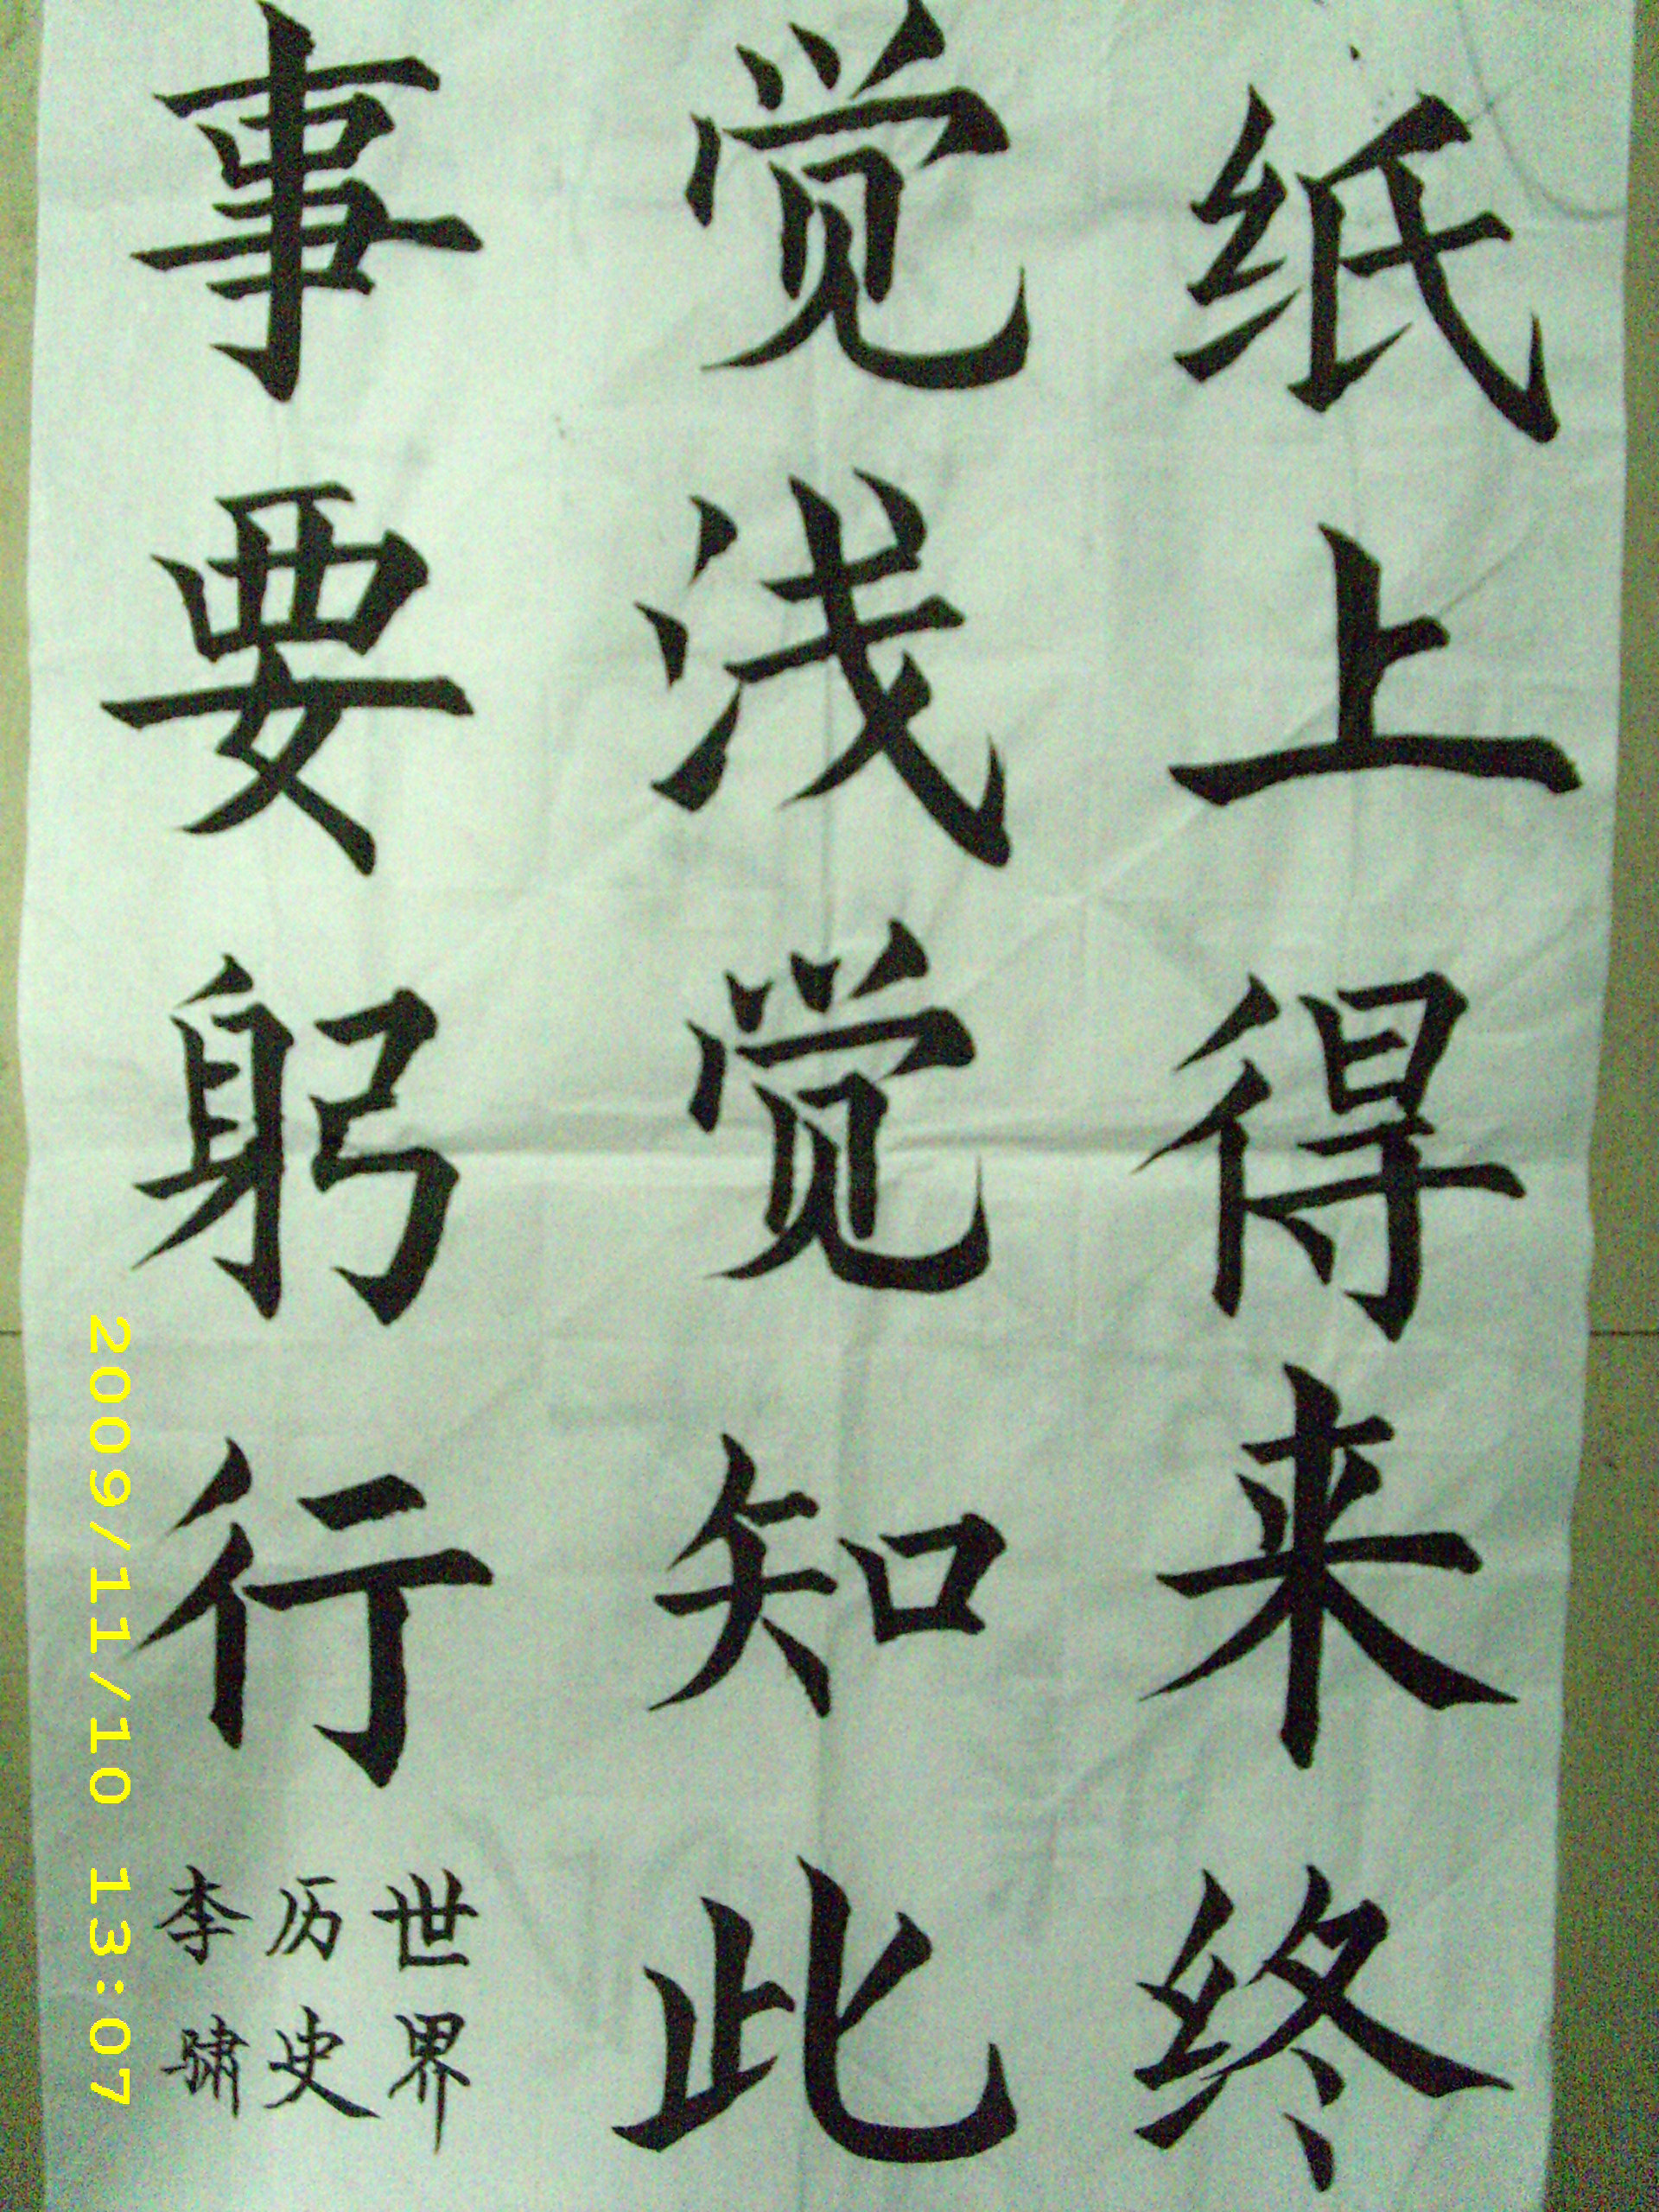 纸上得来终
觉浅觉知此
事要躬行
世界
历史
李骕
2009/11/10 13:07